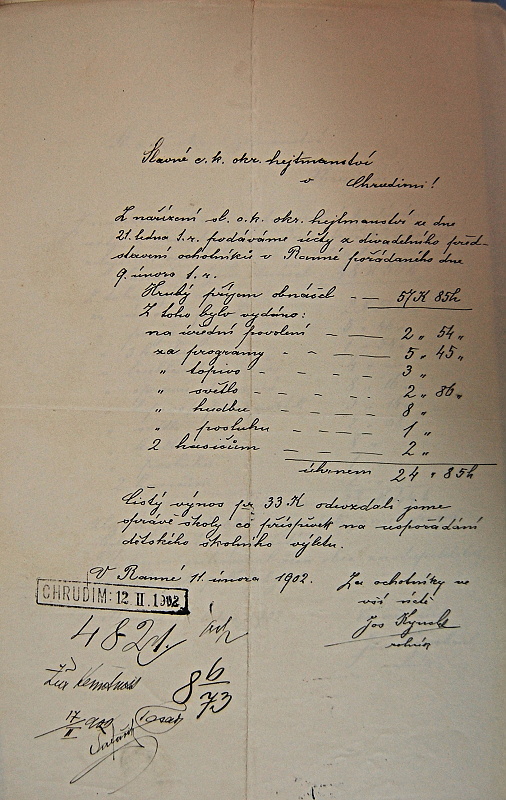 Slavné c. k. okr. hejtmanství
v Chrudimi!
Z nařízení sl. c. k. okr. hejtmanství ze dne
21. ledna t. r. podáváme účty z divadelního před-
stavení ochotníků v Ranné pořádaného dne
9. února t. r.
Hrubý příjem obnášel - — 57 K 85 h
Z toho bylo vydáno:
na úřední povolení - — — 2 „ 54 „
za programy - - — — 5 „ 45 „
„ topivo - - - - - 3 „
„ světlo - - - - - 2 „ 86 „
„ hudbu - - - - - 8 „
„ posluhu - - - - 1 „
2 hasičům — — — — 2 „
úhrnem 24 „ 85 h
Čistý výnos pr. 33 K odevzdali jsme
správě školy co příspěvek na uspořádání
dětského školního výletu.
V Ranné 11. února 1902.
Za ochotníky ve
vší úctě
Jos Kyncl
rolník
CHRUDIM: 12 II. 1902
482
8 6/73
17/II 902